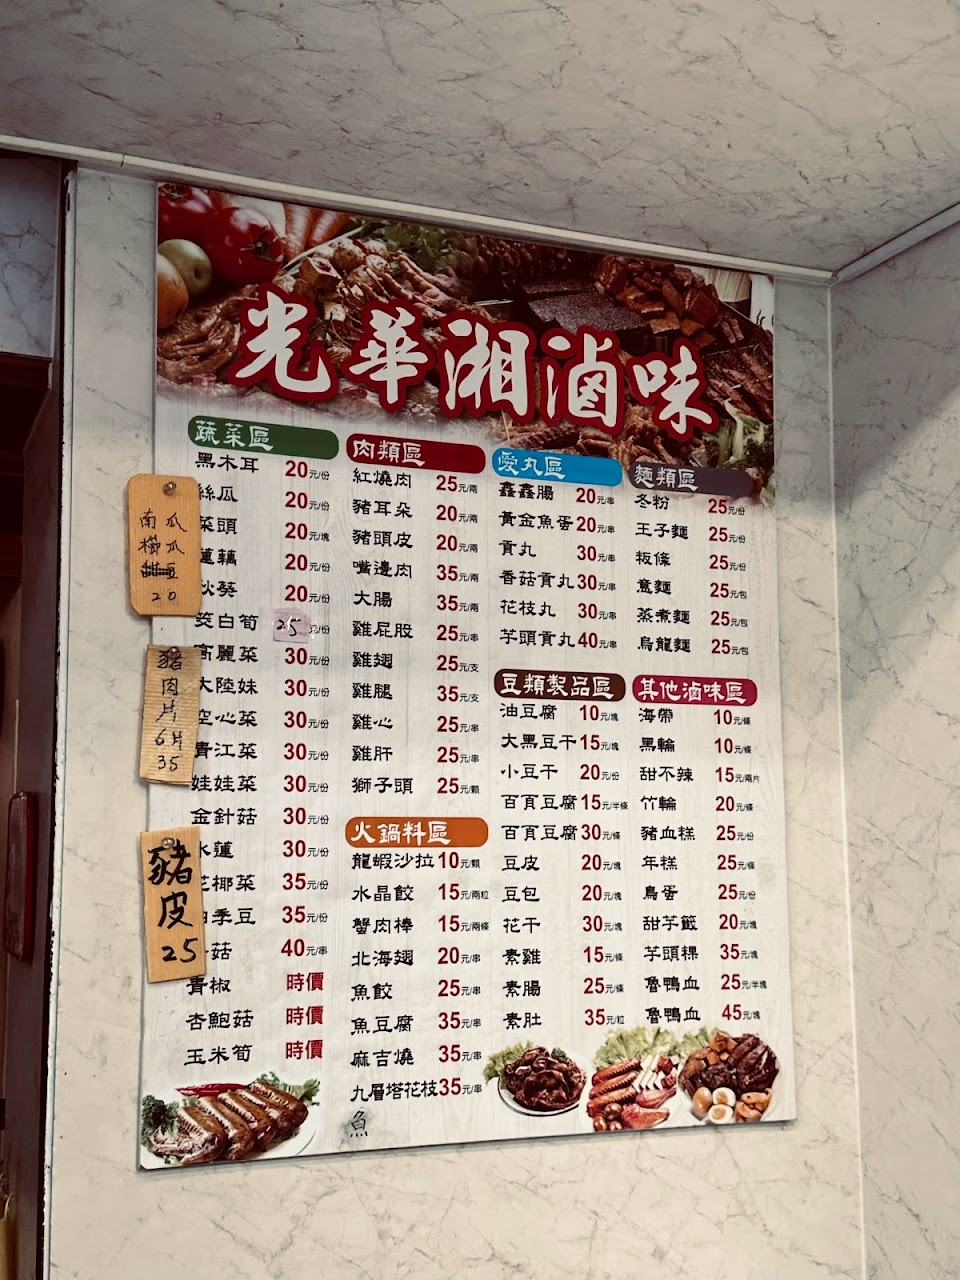 光華湘滷味
蔬菜區
黑木耳 20元/份
絲瓜 20元/份
菜頭 20元/塊
蓮藕 20元/份
秋葵 20元/份
茭白筍 25 元/份
高麗菜 30元/份
大陸妹 30元/份
空心菜 30元/份
青江菜 30元/份
娃娃菜 30元/份
金針菇 30元/份
水蓮 30元/份
花椰菜 35元/份
四季豆 35元/份
菇 40元/串
青椒 時價
杏鮑菇 時價
玉米筍 時價
肉類區
紅燒肉 25元/兩
豬耳朵 20元/兩
豬頭皮 20元/兩
嘴邊肉 35元/兩
大腸 35元/兩
雞屁股 25元/串
雞翅 25元/支
雞腿 35元/支
雞心 25元/串
雞肝 25元/串
獅子頭 25元/顆
火鍋料區
龍蝦沙拉 10元/顆
水晶餃 15元/兩粒
蟹肉棒 15元/兩條
北海翅 20元/串
魚餃 25元/串
魚豆腐 35元/串
麻吉燒 35元/串
九層塔花枝 35元/串
魚
愛丸區
鑫鑫腸 20元/串
黃金魚蛋 20元/串
貢丸 30元/串
香菇貢丸 30元/串
花枝丸 30元/串
芋頭貢丸 40元/串
豆類製品區
油豆腐 10元/塊
大黑豆干 15元/塊
小豆干 20元/份
百頁豆腐 15元/半條
百頁豆腐 30元/條
豆皮 20元/塊
豆包 20元/塊
花干 30元/塊
素雞 15元/條
素腸 25元/條
素肚 35元/粒
麵類區
冬粉 25元/份
王子麵 25元/份
粄條 25元/份
意麵 25元/包
蒸煮麵 25元/包
烏龍麵 25元/包
其他滷味區
海帶 10元/條
黑輪 10元/條
甜不辣 15元/兩片
竹輪 20元/條
豬血糕 25元/份
年糕 25元/條
鳥蛋 25元/份
甜芋籤 20元/塊
芋頭粿 35元/塊
魯鴨血 25元/半塊
魯鴨血 45元/塊
南瓜
櫛瓜
20
豬
肉
片
6片
35
豬
皮
25